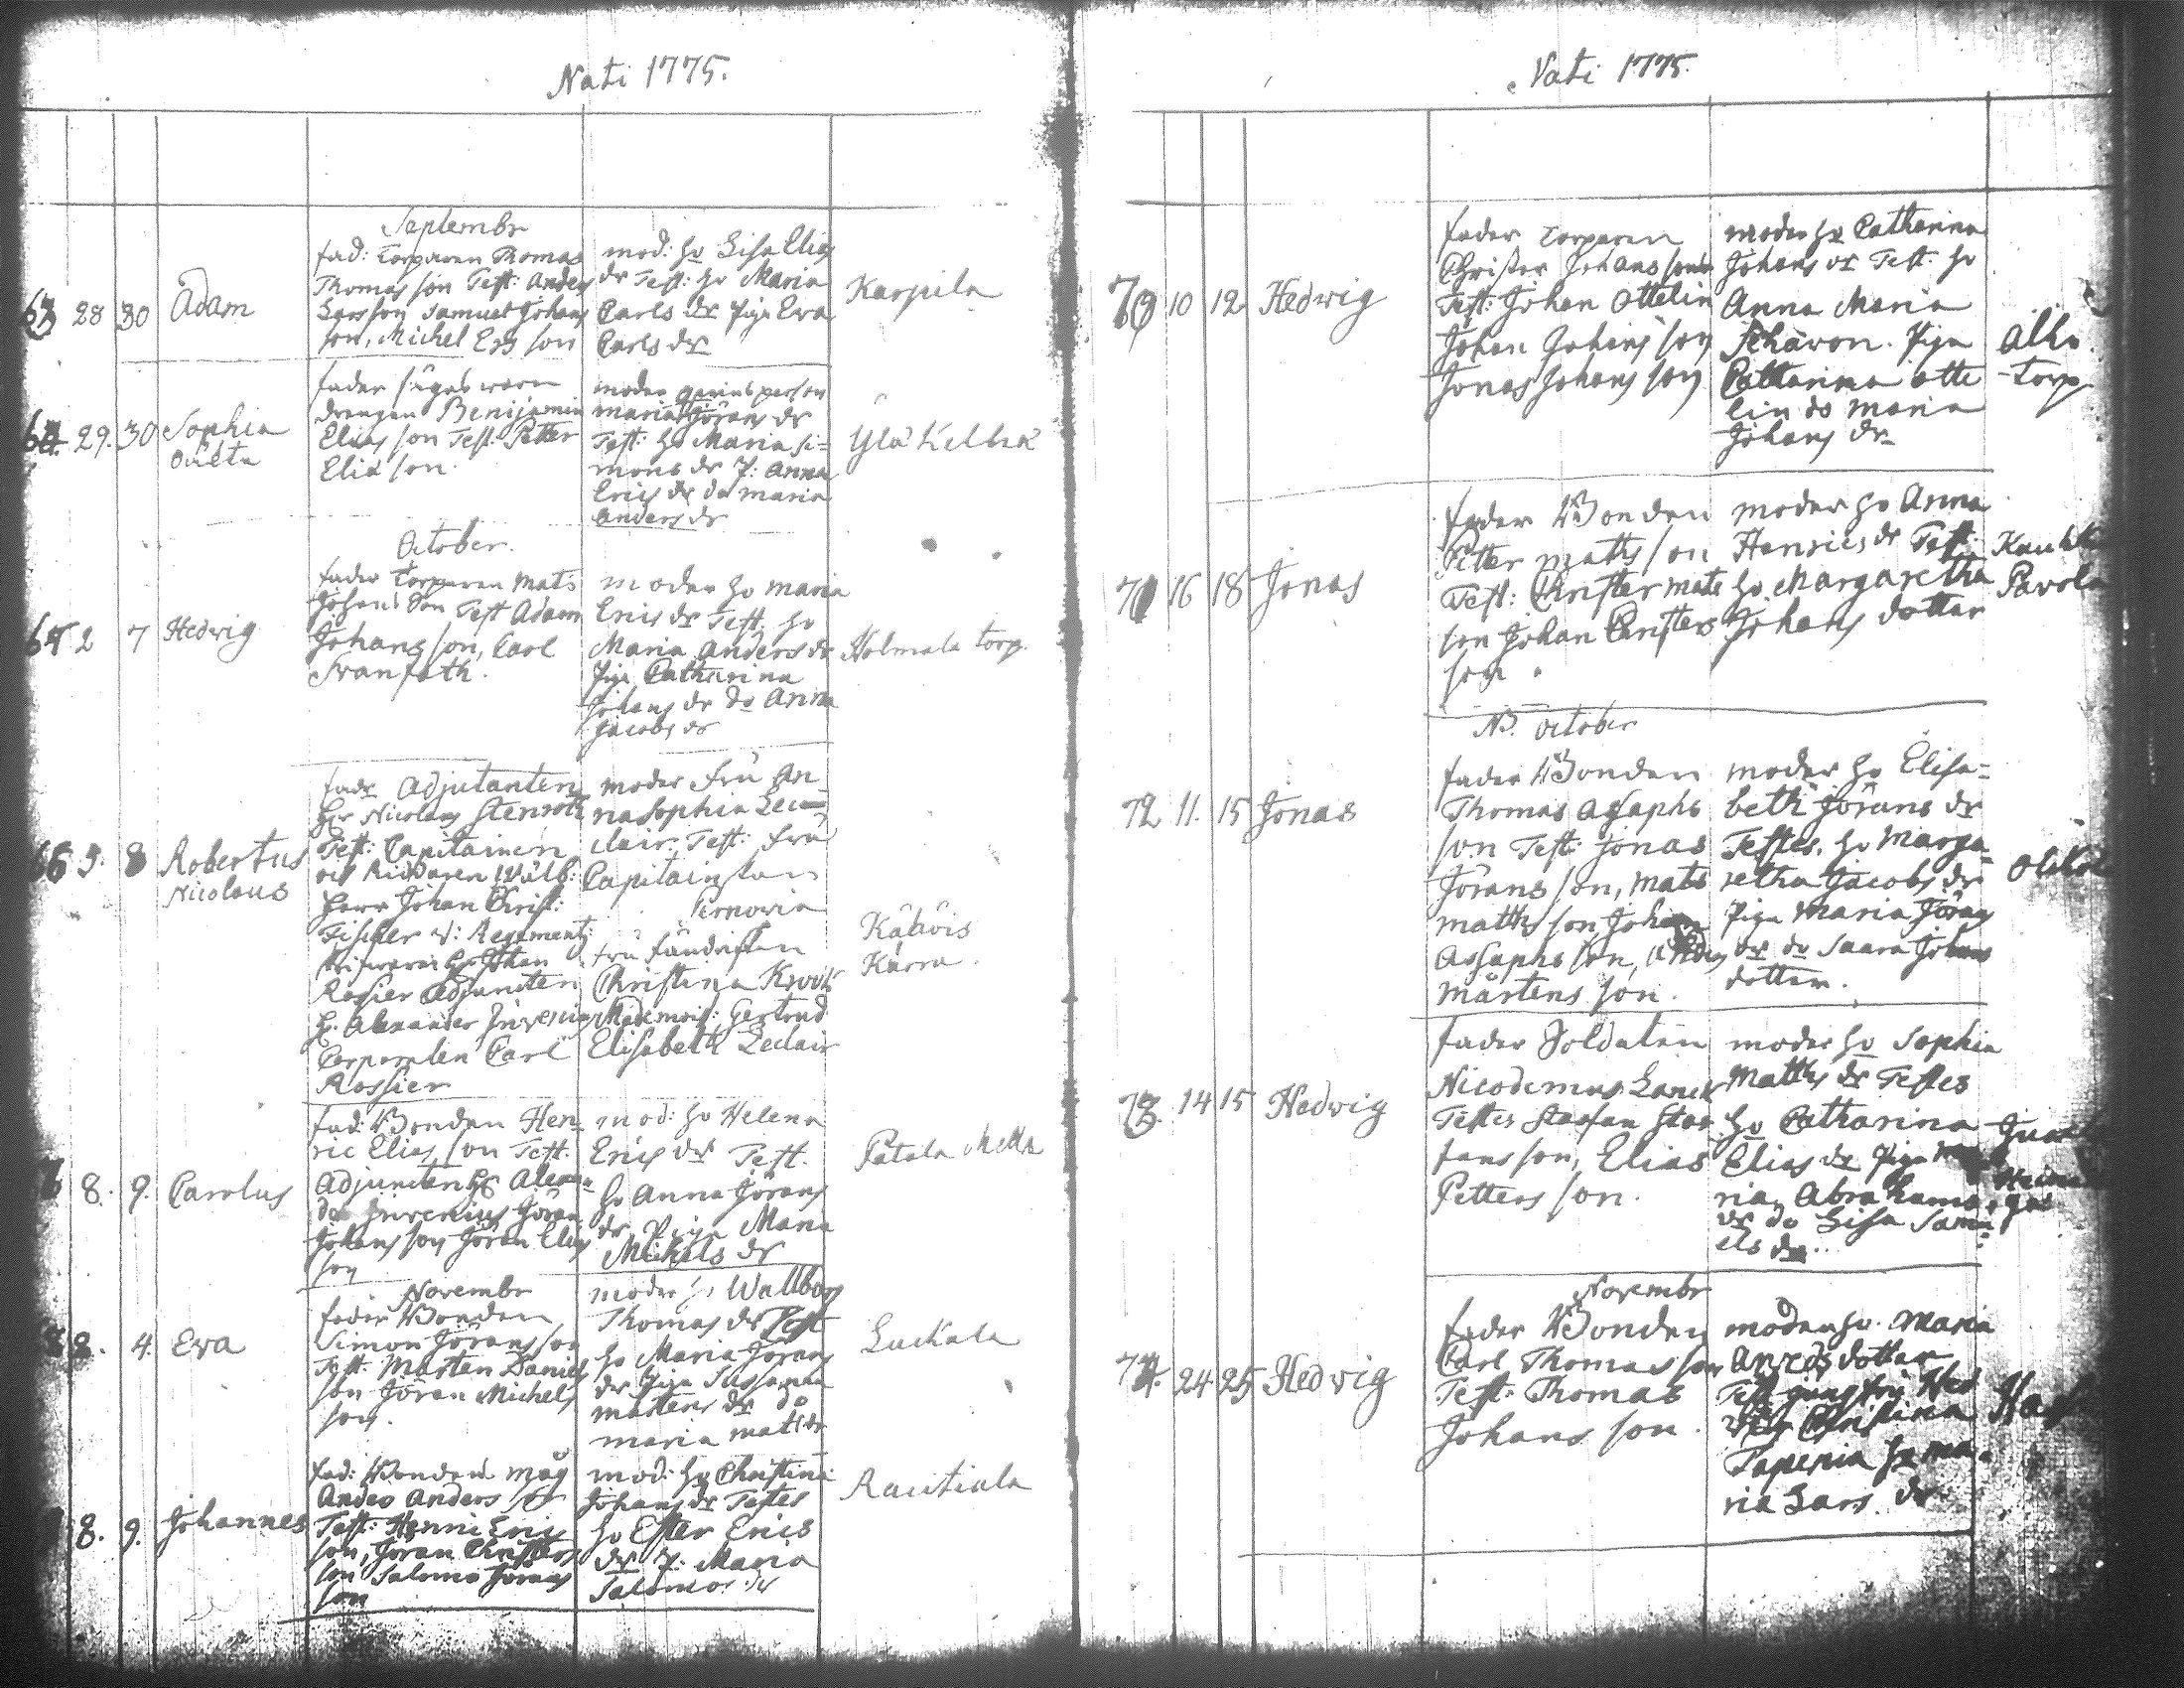 Nati 1775.
Septembr
63 28 30 Adam
fad: Torparen Thomas
Thomas son Test: Anders
Larsson Samuel Johans
son, Michel Ers son
mod: ho Lisa Elias
dr Test: ho Maria
Carls dr Piga Eva
Carls dr
Karpila
64. 29. 30 Sophia
fader
drengen Benijamin
Elias son Test: Petter
Elias son.
moder
Maria Görans dr
Test: ho Maria Si-
mons dr P: Anna
Erics dr do Maria
Anders dr
October.
65 2 7 Hedwig
fader Torparen Mats
Johans Son Test Adam
Johans son, Carl
moder ho Maria
Erics dr Test. ho
Maria Anders dr
Piga Catharina
Johans dr do Anna
Jacobs dr
Holmala torp.
66 5. 8 Robertus
Nicolaus
fadr Adjutanten
Hr Nicolaus Stenroth
Test: Capitainen
och Riddaren
Herr Johan Christ:
Fischer Regements
Hr Johan
Rosier Adjuncten
H. Alexander
Corporalen Carl
Rossier
moder Fru An-
na Sophia Lec-
lair Test: Fru
Capitainskan
Fru Fändrikan
Christina
Mademois: Gertrud
Elisabeth Leclair
Käköis
Kärra
8. 9. Carolus
fad: Bonden Hen-
ric Elias son Test.
Adjuncten Hr Alexan-
der Göran
Johans son Göran Elias
son
mod: ho Helena
Erics dr Test.
ho Anna Görans
dr Piga Maria
Michels dr
Patala
Novembr
2. 4. Eva
fader Bonden
Simon Görans son
Test. Mårten Daniels
son Göran Michels
son.
moder ho Wallborg
Thomas dr Test
ho Maria Görans
dr Piga Susanna
Mårtens dr do
Maria Matts dr
Luckala
8. 9. Johannes
fad: Bonden Måg
Anders Anders son
Test: Henric Erics
son, Göran Christers
son Salomo Görans
son
mod: ho Christina
Johans dr Testes
ho Ester Erics
dr P: Maria
Salomos dr
Rautiala
Nati 1775.
70 10 12 Hedwig
fader Torparen
Christer Johans son
Test: Johan Ottelin
Johan Johans son
Jonas Johans son
moder ho Catharina
Johans dr Test: ho
Anna Maria
Piga
Catharina Otte
lin do Maria
Johans dr
Alho
-torp
71 16 18 Jonas
fader Bonden
Petter Matts son
Test: Christer Mats
son Johan Christers
son
moder ho Anna
Henrics dr Test:
ho Margaretha
Johans dotter
Pavola
NB. October
72 11. 15 Jonas
fader Bonden
Thomas Asaphs
son Test: Jonas
Görans son, Mats
Matts son, Johan
Assaphs son, Anders
Mårtens son.
moder ho Elisa-
beth Görans dr
Testes. ho Marga-
retha Jacobs dr
Piga Maria Görans
dr do Saara Johans
dotter.
73. 14 15 Hedwig
fader Soldaten
Nicodemus
Testes Staffan Staf-
fans son, Elias
Petters son.
moder ho Sophia
Matths dr Testes
ho Catharina
Elias dr Piga Ma-
ria Abrahams
dr do Lisa Samu-
els dr.
Novembr
74. 24 25 Hedwig
fader Bonden
Carl Thomas son
Test: Thomas
Johans son.
moder ho Maria
Anders dotter
Test Jungfru Hed
wig Christina
ho Ma-
ria Lars dr